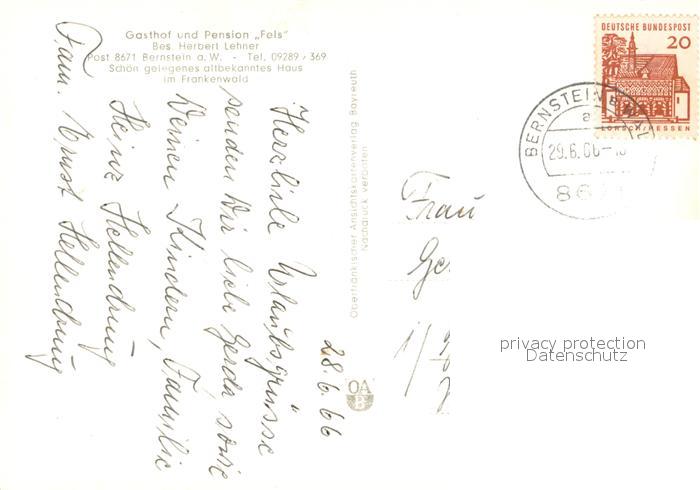 Gasthof und Pension „Fels"
Bes. Herbert Lehner
Post 8671 Bernstein a. W. - Tel. 09289/369
Schön gelegenes altbekanntes Haus
im Frankenwald
28.6.66
Herzliche Urlaubsgrüsse
senden Dir liebe Gerda sowie
Deinen Kindern, Familie
Heinz Hellendrung
Fam. Ernst Hellendrung
Oberfränkischer Ansichtskartenverlag Bayreuth
Nachdruck verboten
OA
B
DEUTSCHE BUNDESPOST
20
LORSCH/HESSEN
BERNSTEIN
a
29.6.66
867
Frau
Ge
privacy protection
Datenschutz